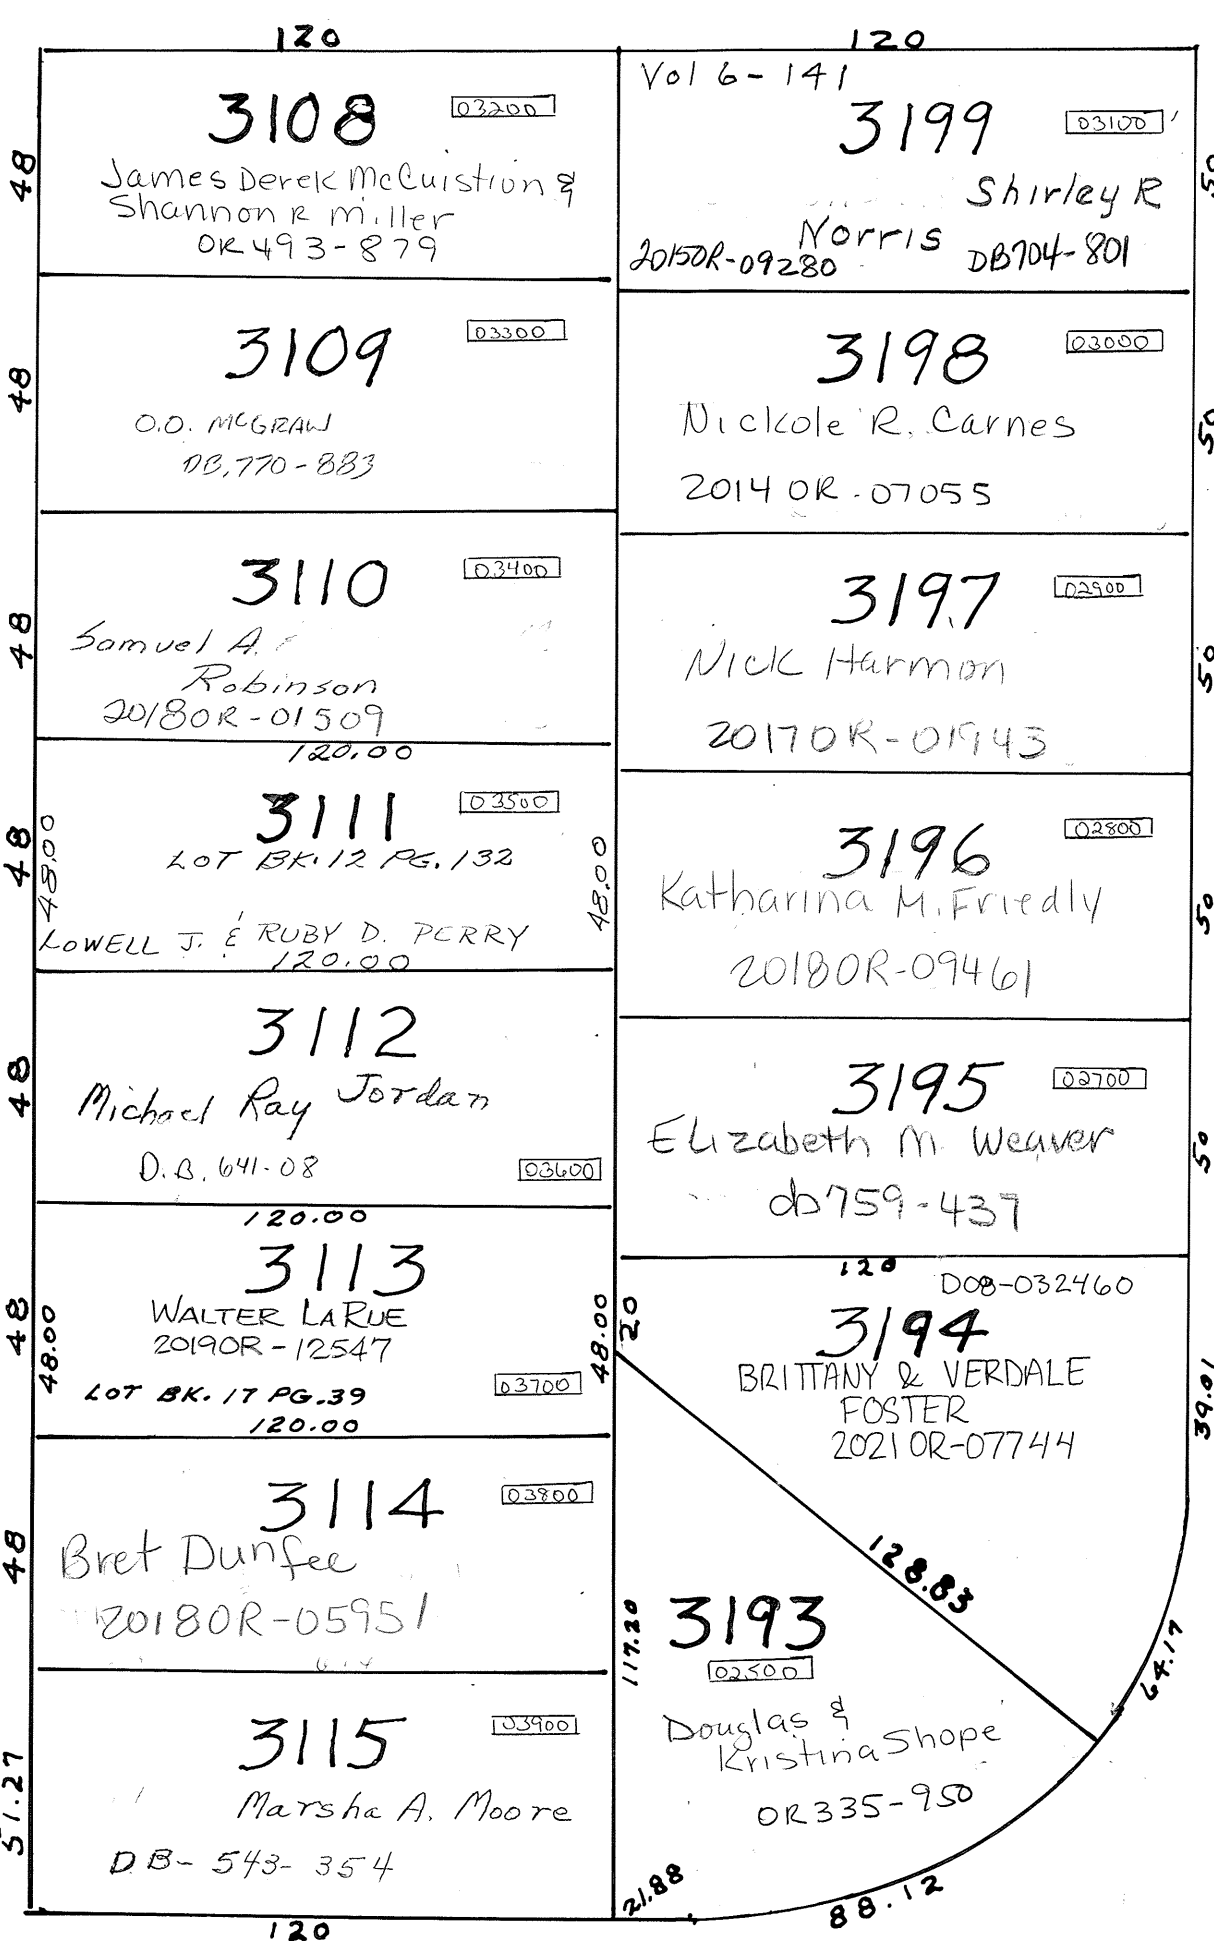 120
48
3108
03200
James Derek McCuistion &
Shannon R Miller
OR 493-879
48
3109
03300
O.O. MCGRAW
DB.770-883
48
3110
03400
Samuel A.
Robinson
2018OR-01509
120.00
48
48.00
3111
03500
LOT BK.12 PG.132
48.00
LOWELL J. & RUBY D. PERRY
120.00
48
3112
Michael Ray Jordan
D.B. 641-08
03600
120.00
48
48.00
3113
WALTER LARUE
2019OR-12547
48.00
LOT BK. 17 PG.39
03700
120.00
48
3114
03800
Bret Dunfee
2018OR-05951
51.27
3115
03900
Marsha A. Moore
DB- 543- 354
120
120
Vol 6-141
3199
03100
50
Shirley R
Norris
2015OR-09280
DB704-801
3198
03000
50
Nickole R. Carnes
2014 OR-07055
3197
02900
50
Nick Harmon
2017OR-01943
3196
02800
50
Katharina M. Friedly
2018OR-09461
3195
02700
50
Elizabeth M. Weaver
db759-437
120
D08-032460
20
3194
BRITTANY & VERDALE
FOSTER
2021 OR-07744
39.01
128.83
64.17
117.20
3193
02500
Douglas &
Kristina Shope
OR335-950
21.88
88.12